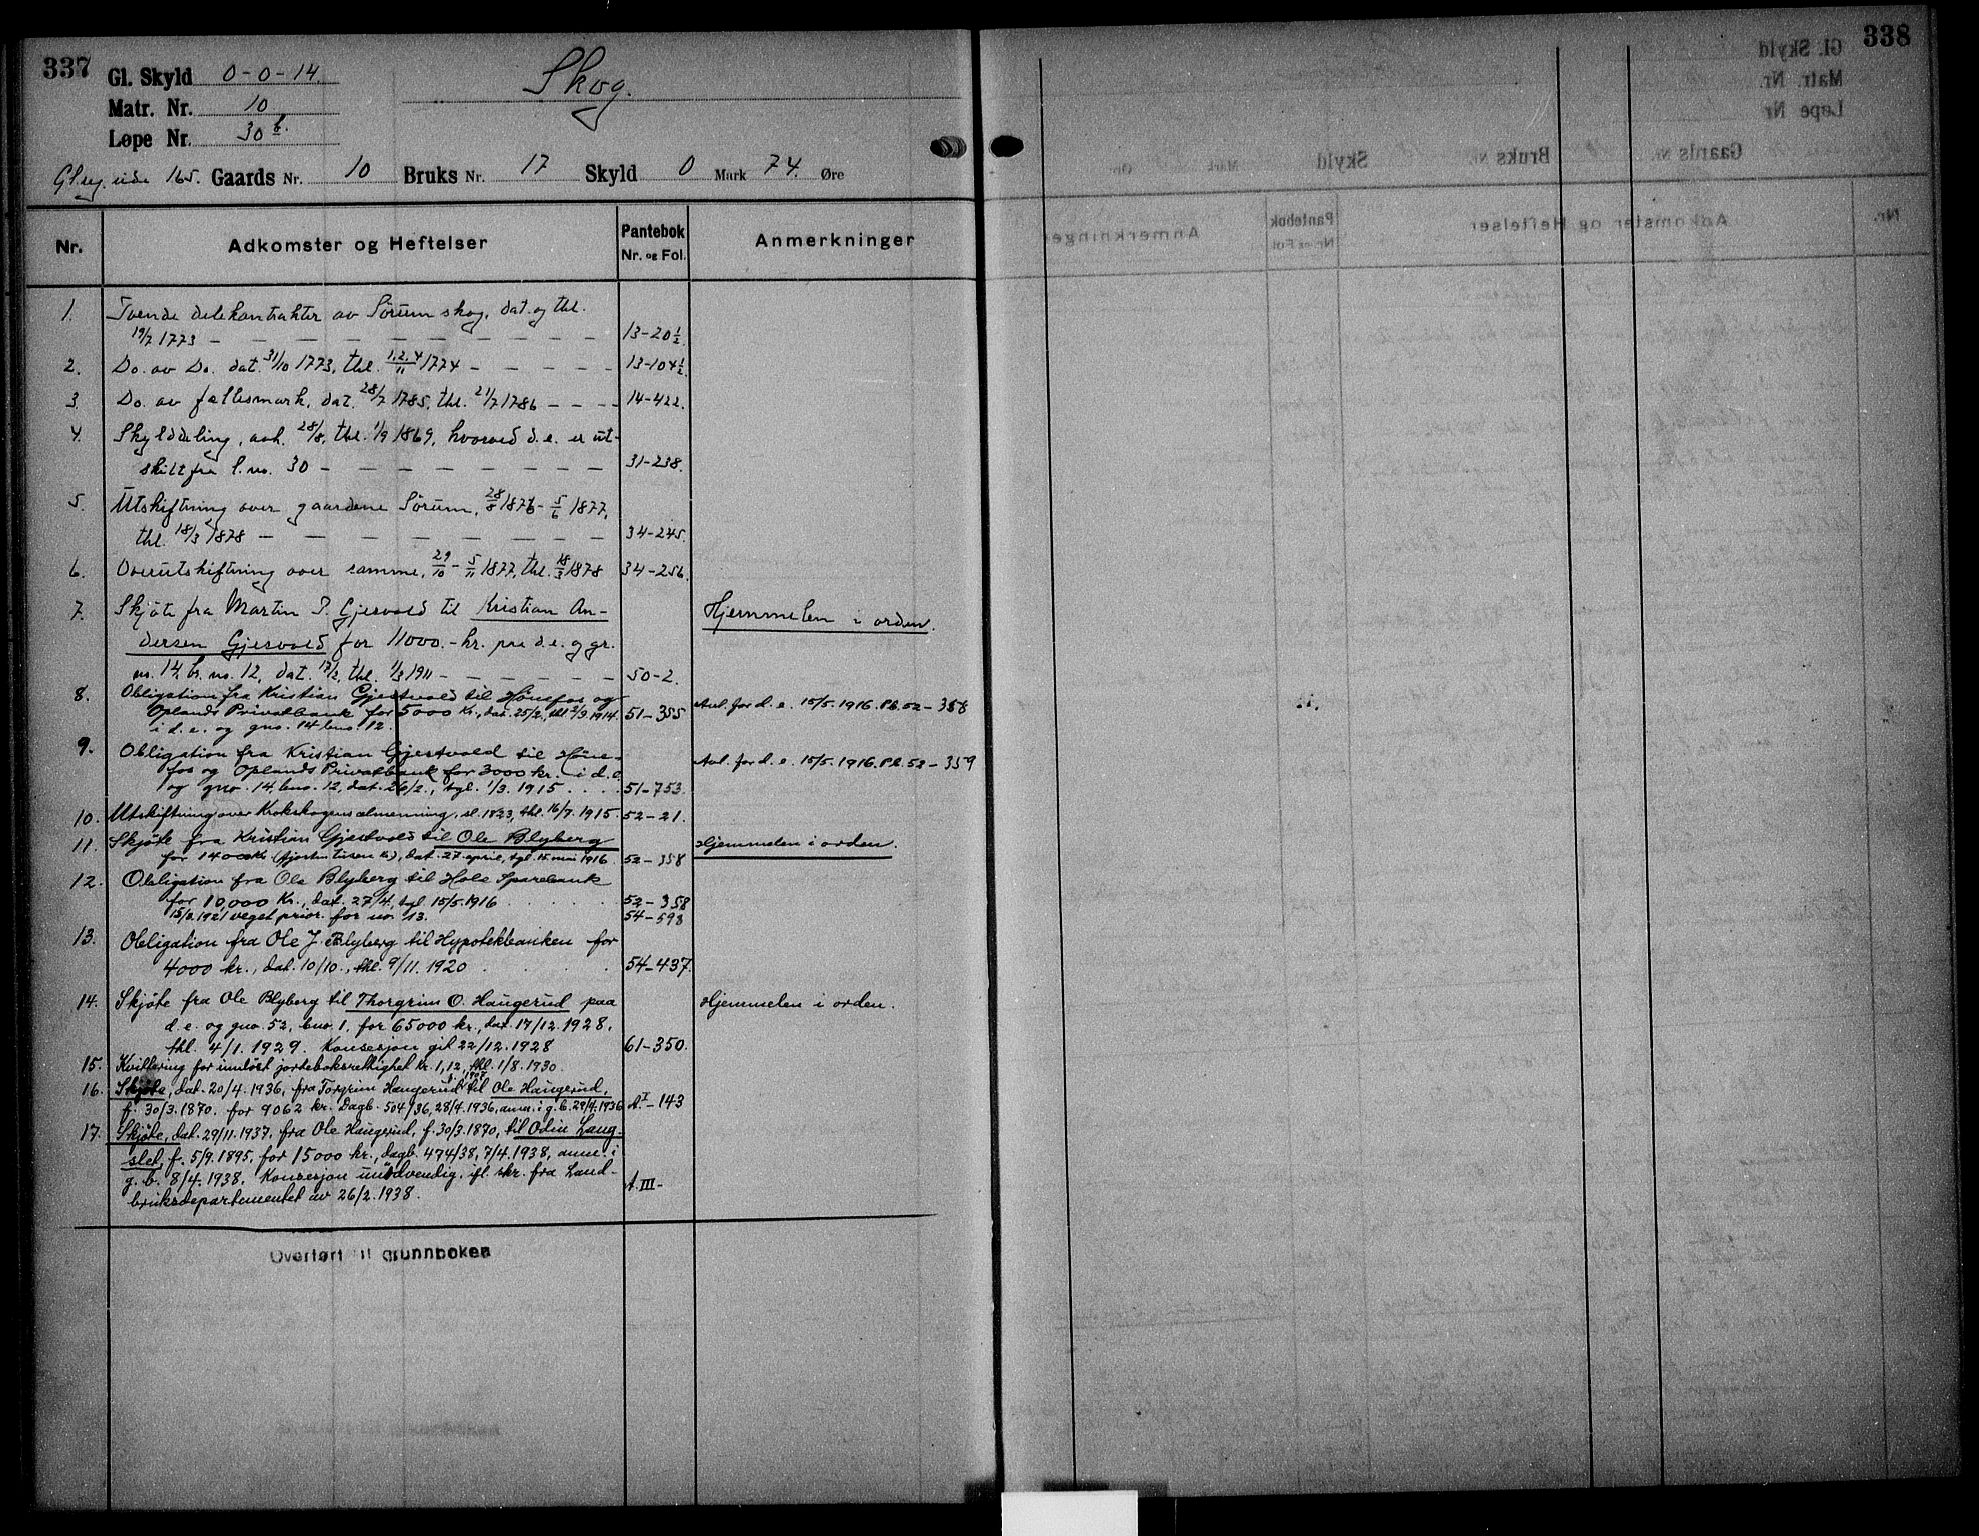 337
338
Gl. Skyld 0-0-14.
Skog.
Matr. Nr. 10
Løpe Nr. 30 b.
Gl. reg. side 165. Gaards Nr. 10 Bruks Nr. 17 Skyld 0 Mark 74. Øre
Nr. Adkomster og Heftelser Pantebok Nr. og Fol. Anmerkninger
1. Tvende delekontrakter av Sørum skog, dat. og thl.
19/7 1773 — — — — — — — — — 13-20 1/2.
2. Do. av Do. dat. 31/10 1773, thl. 1,2,4/11 1774 — — — — — 13-104 1/2.
3. Do. av fællesmark, dat. 28/7 1785, thl. 21/7 1786 — — — 14-422.
4. Skylddeling, avh. 28/8, thl. 1/9 1869, hvorved d.e. er ut-
skilt fra l.no. 30 — — — — — — — 31-238.
5. Utskiftning over gaardene Sørum, 28/8 1876 - 5/6 1877,
thl. 18/3 1878 — — — — — — — — 34-245.
6. Overutskiftning over samme, 29/10 - 5/11 1877, thl. 18/3 1878 34-256.
7. Skjøte fra Martin P. Gjesvold til Kristian An- Hjemmelen i orden.
dersen Gjesvold for 11000.- kr. paa d.e. og gr.
no. 14, br. no. 12, dat. 17/2, thl. 1/3 1911 — — — — — 50-2.
8. Obligation fra Kristian Gjestvold til Hønefos og
Oplands Privatbank for 5000 kr., dat. 25/2., thl. 2/3. 1914. 51-355 Avl. for d. e. 15/5. 1916. Pb. 52-358
i d. e. og gno. 14 bno. 12.
9. Obligation fra Kristian Gjestvold til Høne-
fos og Oplands Privatbank for 3000 kr. i d. e. Avl. for d. e. 15/5. 1916. Pb. 52-359
og gno. 14, bno. 12, dat. 26/2., tgl. 1/3. 1915 . . . . 51-753.
10. Utskiftning over Krokskogens almenning, sl. 1823, thl. 16/7. 1915. 52-21.
11. Skjøte fra Kristian Gjestvold til Ole Blyberg Hjemmelen i orden.
for 14000 kr. (fjorten tusen kr.), dat. 27. april, tgl. 15. mai 1916. 52-358
12. Obligation fra Ole Blyberg til Hole Sparebank
for 10,000 Kr., dat. 27/4., tgl. 15/5. 1916 . . . . . 52-358
15/2. 1921 veget prior. for no. 13. 54-598
13. Obligation fra Ole J. Blyberg til Hypotekbanken for
4000 kr., dat. 10/10., thl. 9/11. 1920 . . . . . 54-437.
14. Skjøte fra Ole Blyberg til Thorgrim O. Haugerud paa Hjemmelen i orden.
d. e. og gno. 52, bno. 1, for 65000 kr., dat. 17/12. 1928,
thl. 4/1. 1929. Konsesjon git 22/12. 1928 61-350.
15. Kvittering for innløst jordeboksrettighet kr. 1,12, thl. 1/8. 1930.
16. Skjøte, dat. 20/4. 1936, fra Torgrim Haugerud til Ole Haugerud,
f. 30/3. 1870. for 9062 kr. Dagb. 504/36, 28/4. 1936, anm. i g. b. 29/4. 1936 A.I-143
17. Skjøte, dat. 29/11. 1937, fra Ole Haugerud, f. 30/3. 1870, til Odin Lang-
slet, f. 5/9. 1895, for 15000 kr., dagb. 474/38, 7/4. 1938, anm. i
g. b. 8/4. 1938. Konsesjon unødvendig, ifl. skr. fra Land- A.III-
bruksdepartementet av 26/2. 1938.
Overført til grunnboken